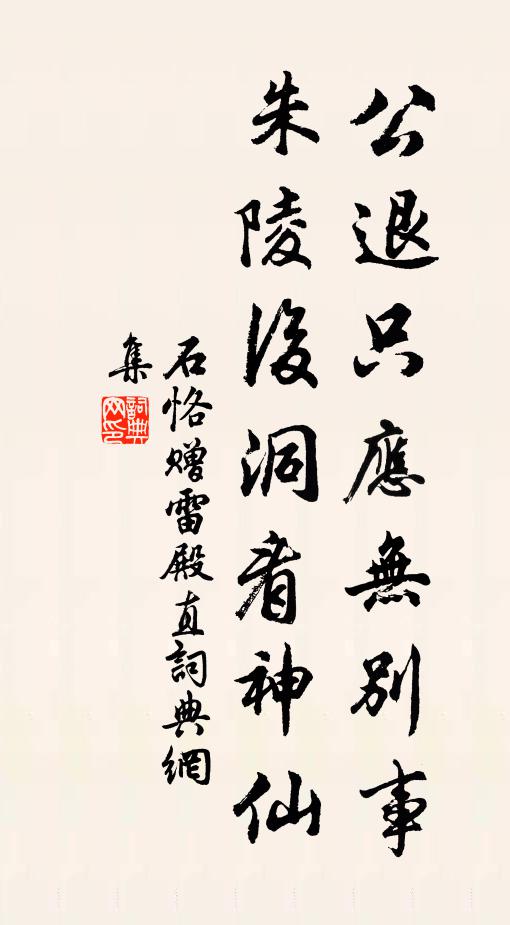 公退只應無別事
朱陵後洞看神仙
石恪贈雷殿直詞典網
集
詞典网印